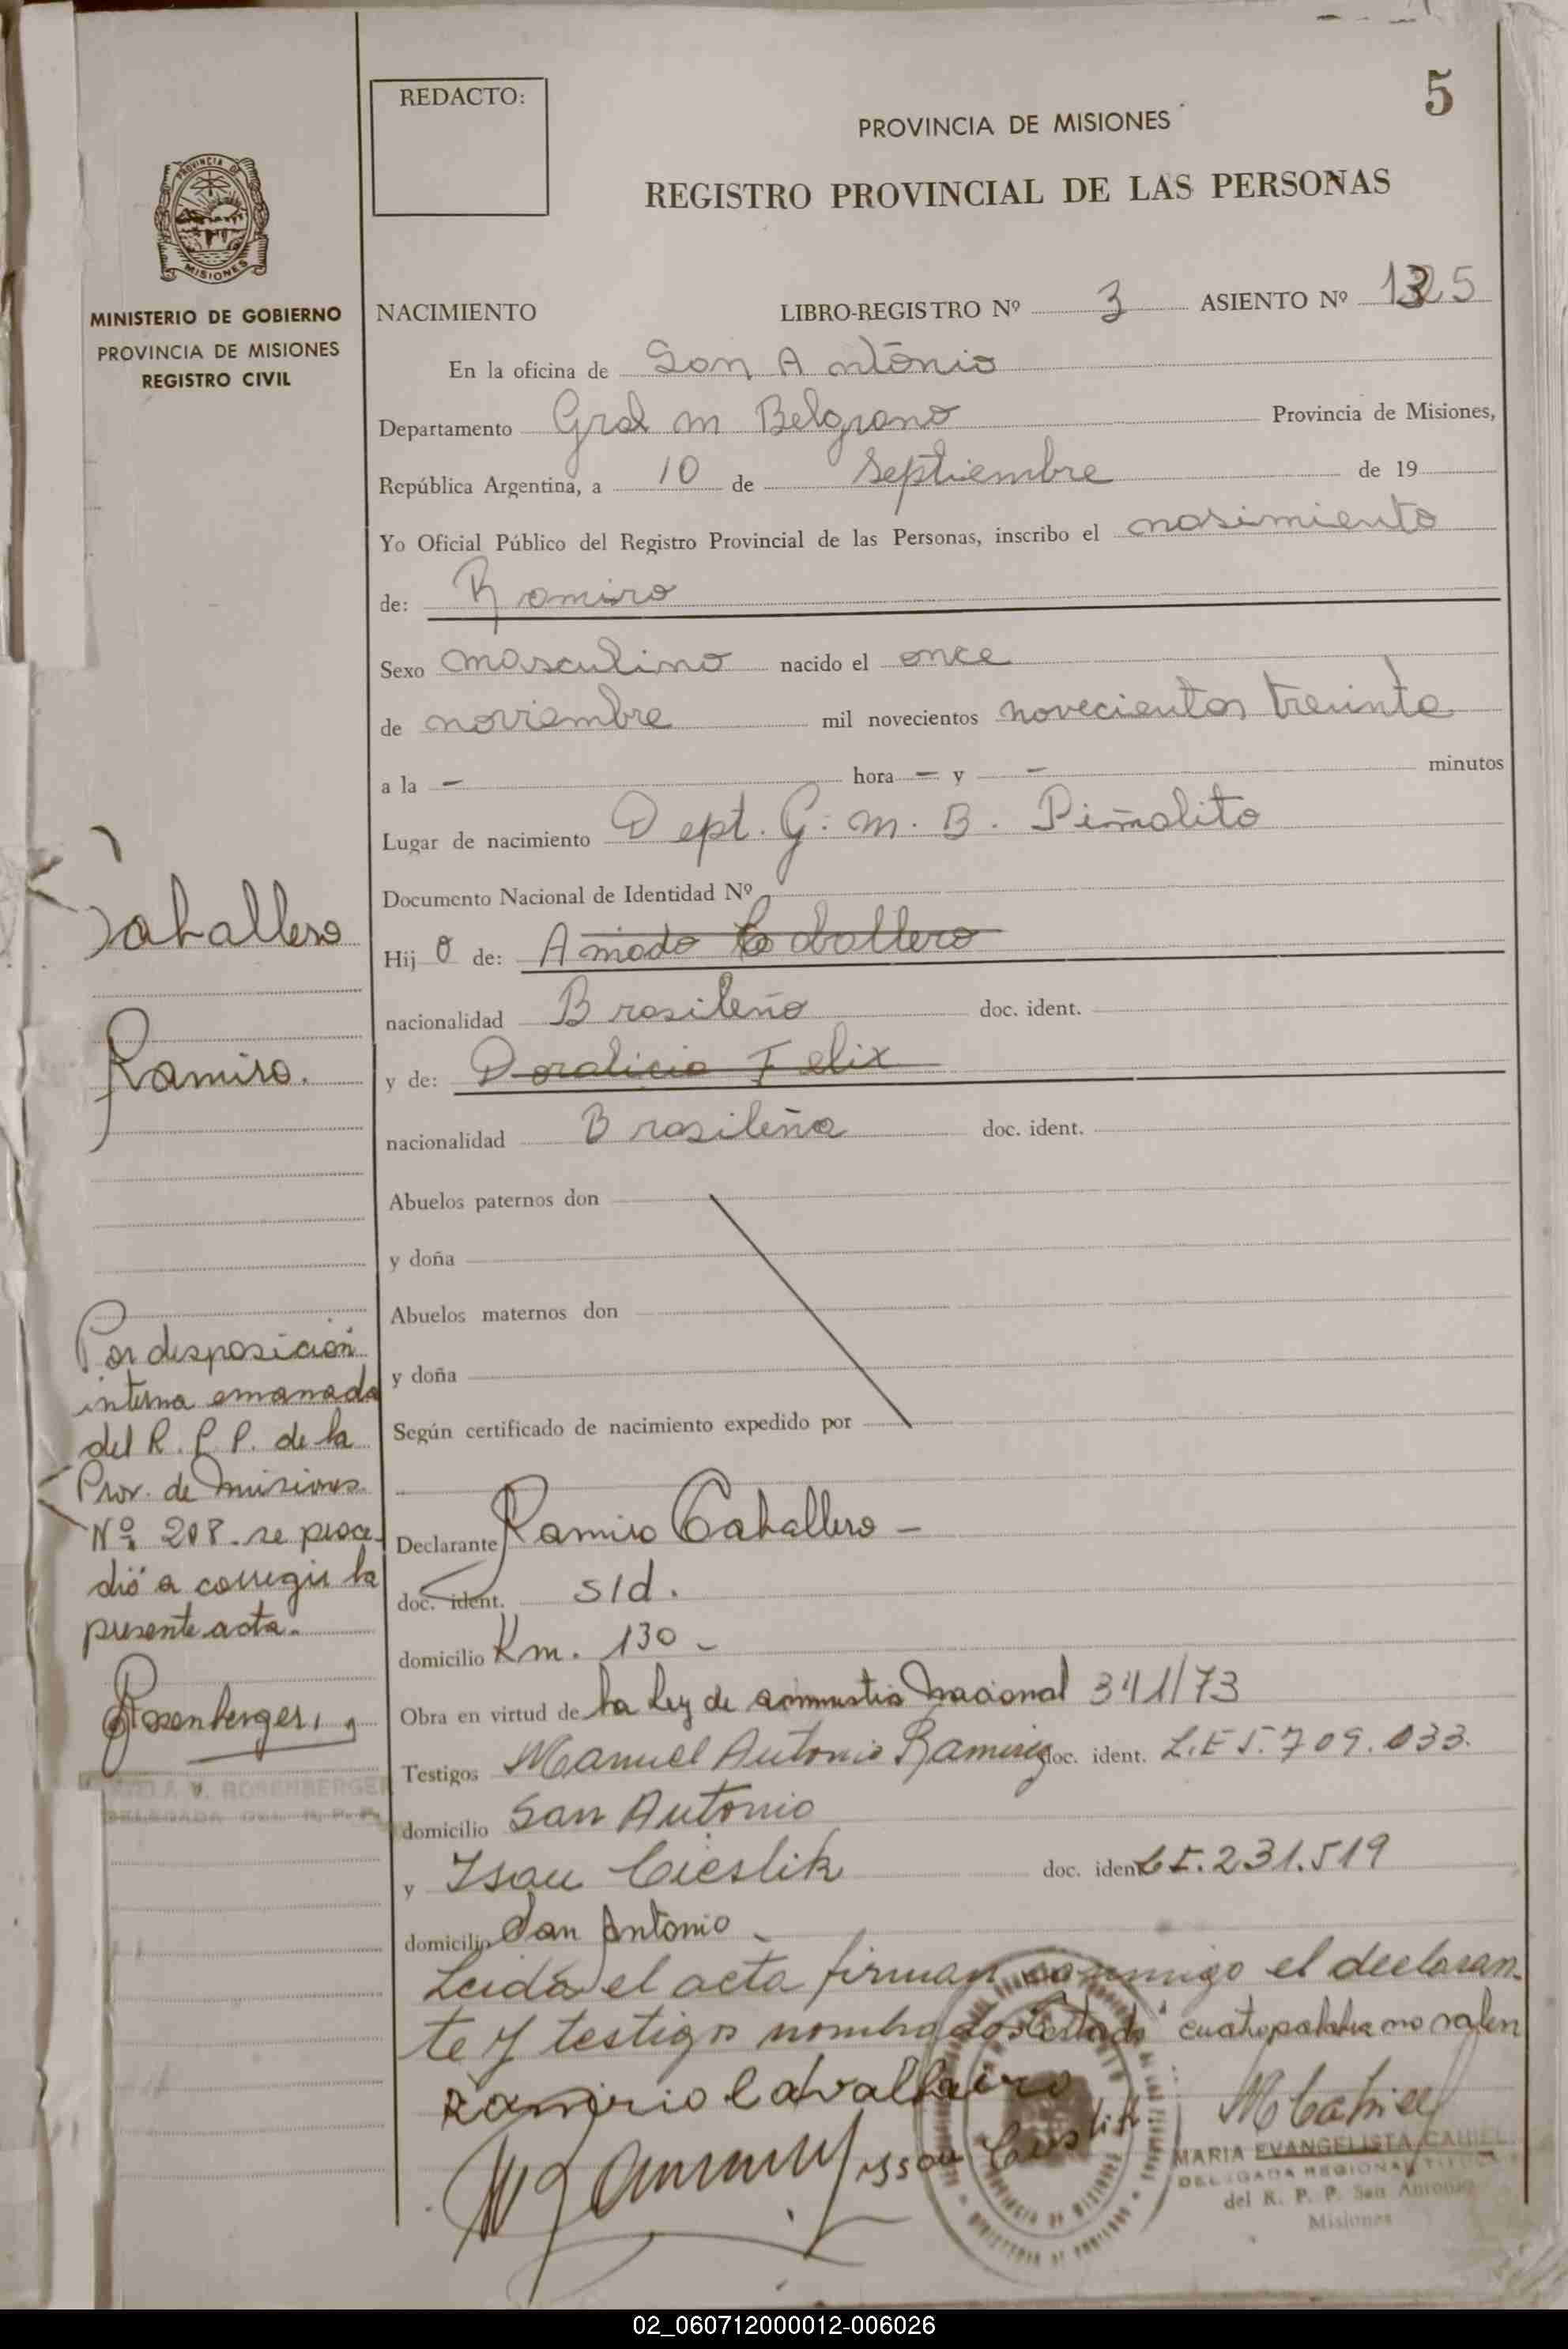 5
REDACTO:
PROVINCIA DE MISIONES
REGISTRO PROVINCIAL DE LAS PERSONAS
PROVINCIA DE
MISIONES
MINISTERIO DE GOBIERNO
PROVINCIA DE MISIONES
REGISTRO CIVIL
NACIMIENTO LIBRO-REGISTRO Nº 3 ASIENTO Nº
En la oficina de San Antônio
Departamento Gral m Belgrano Provincia de Misiones,
República Argentina, a 10 de septiembre de 19
Yo Oficial Público del Registro Provincial de las Personas, inscribo el nasimiento
de: Romiro
Sexo masculino nacido el once
de noviembre mil novecientos novecientos treinta
a la — hora — y — minutos
Lugar de nacimiento Dept. G. m. B. Piñalito
Documento Nacional de Identidad Nº
Hij o de: Amado Caballero
nacionalidad Brasileño doc. ident.
y de: Doralicia Felix
nacionalidad Brasileña doc. ident.
Abuelos paternos don
y doña
Abuelos maternos don
y doña
Según certificado de nacimiento expedido por
Declarante Ramiro Caballero -
doc. ident. s/d.
domicilio Km. 130 -
Obra en virtud de la Ley de amnustia Nacional 341/73
Testigos Manuel Antonio Ramirez doc. ident. L.E 5.709.033.
domicilio San Antonio
y Isau Cieslik doc. ident. 231.519
domicilio San Antonio -
Leida el acta firman conmigo el declaran-
te y testigos nombrados "Testado" cuatro palabra no valen
Ramirio Cavalleiro
MCahiel
MARIA EVANGELISTA CAHIEL
DELEGADA REGIONAL TITULAR
del R. P. P. San Antonio
Misiones
Caballero
Ramiro.
Por disposición
interna emanada
del R. P P. de la
Prov. de Misiones
Nº 208. se proce-
dió a corregir la
presente acta.
Rosenberger
V. ROSENBERGER
DELEGADA DEL R. P. P.
02_060712000012-006026